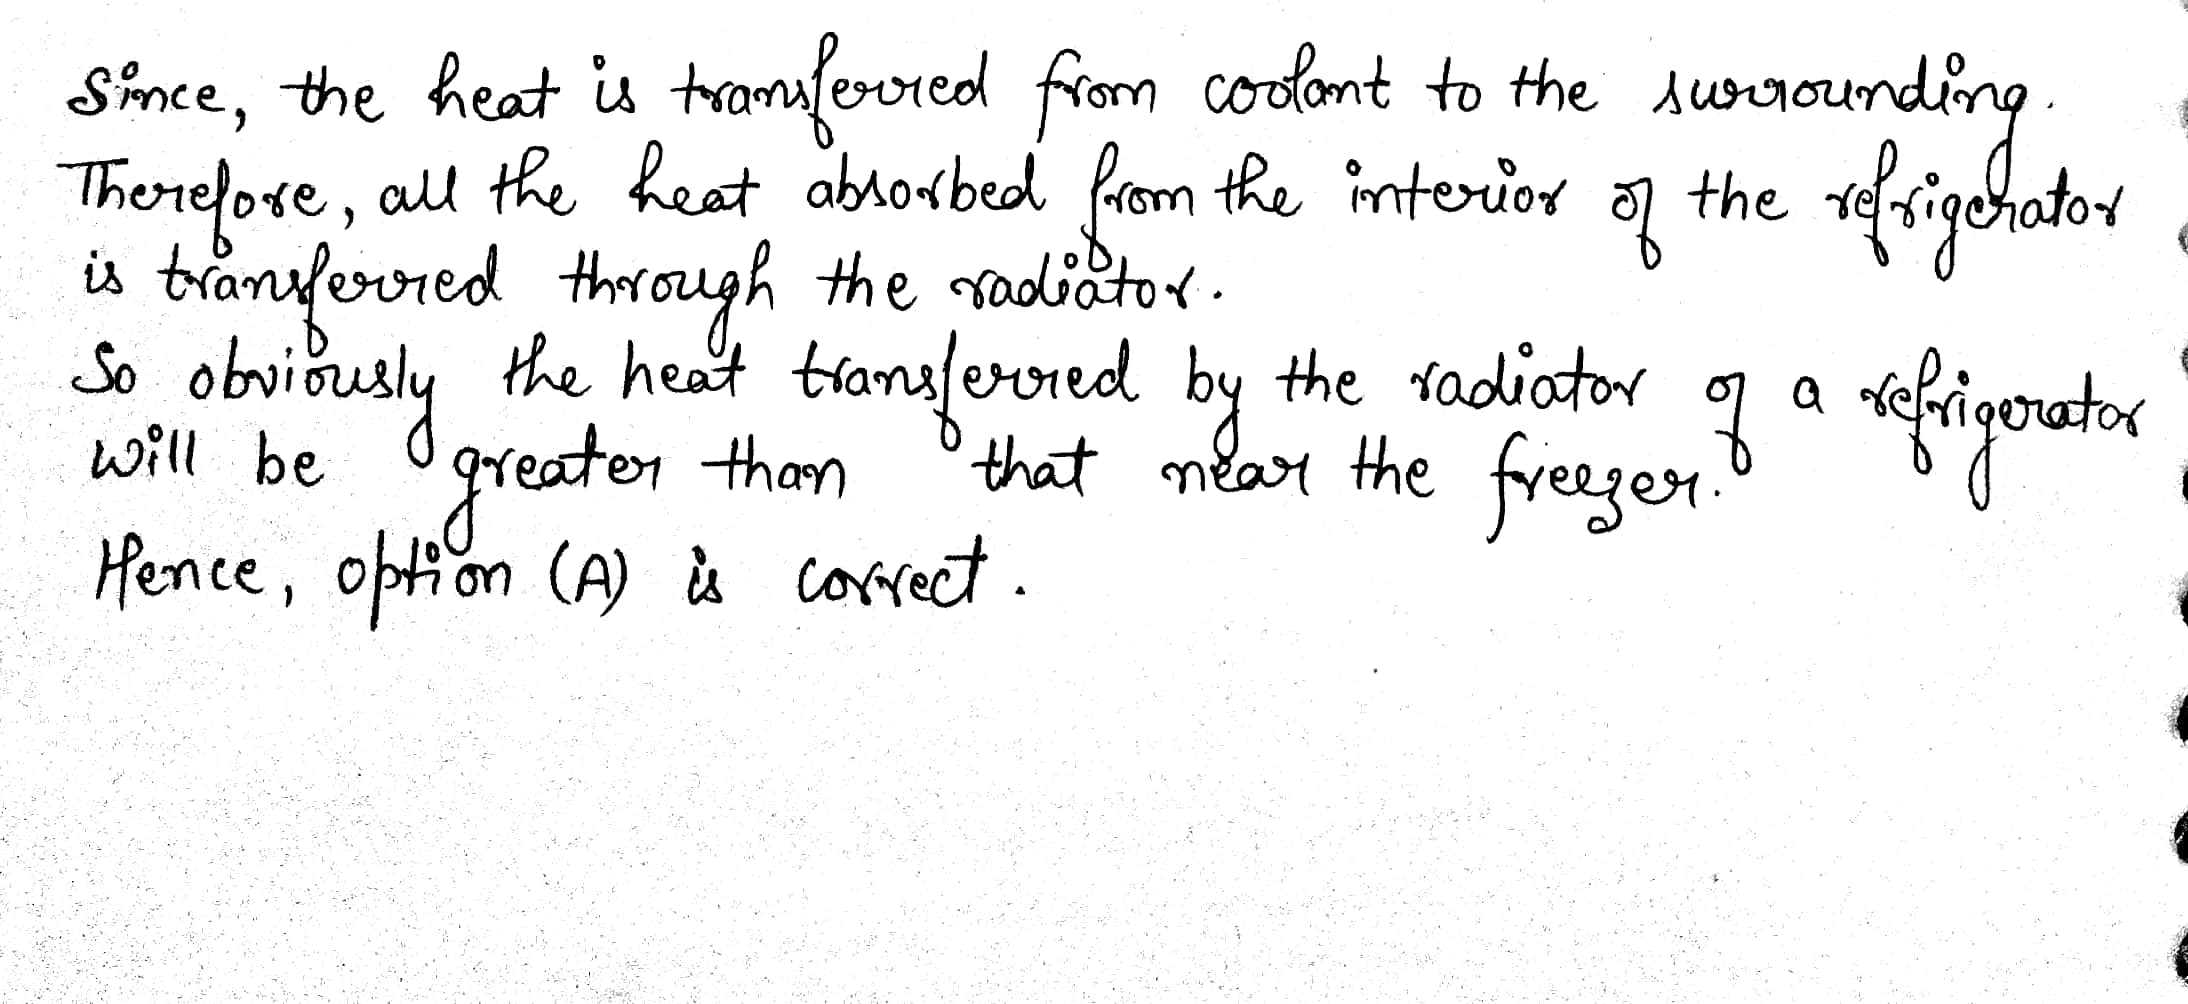 Since, the heat is transferred from coolant to the surrounding.
Therefore, all the heat absorbed from the interior of the refrigerator
is transferred through the radiator.
So obviously the heat transferred by the radiator of a refrigerator
will be greater than that near the freezer.
Hence, option (A) is correct.